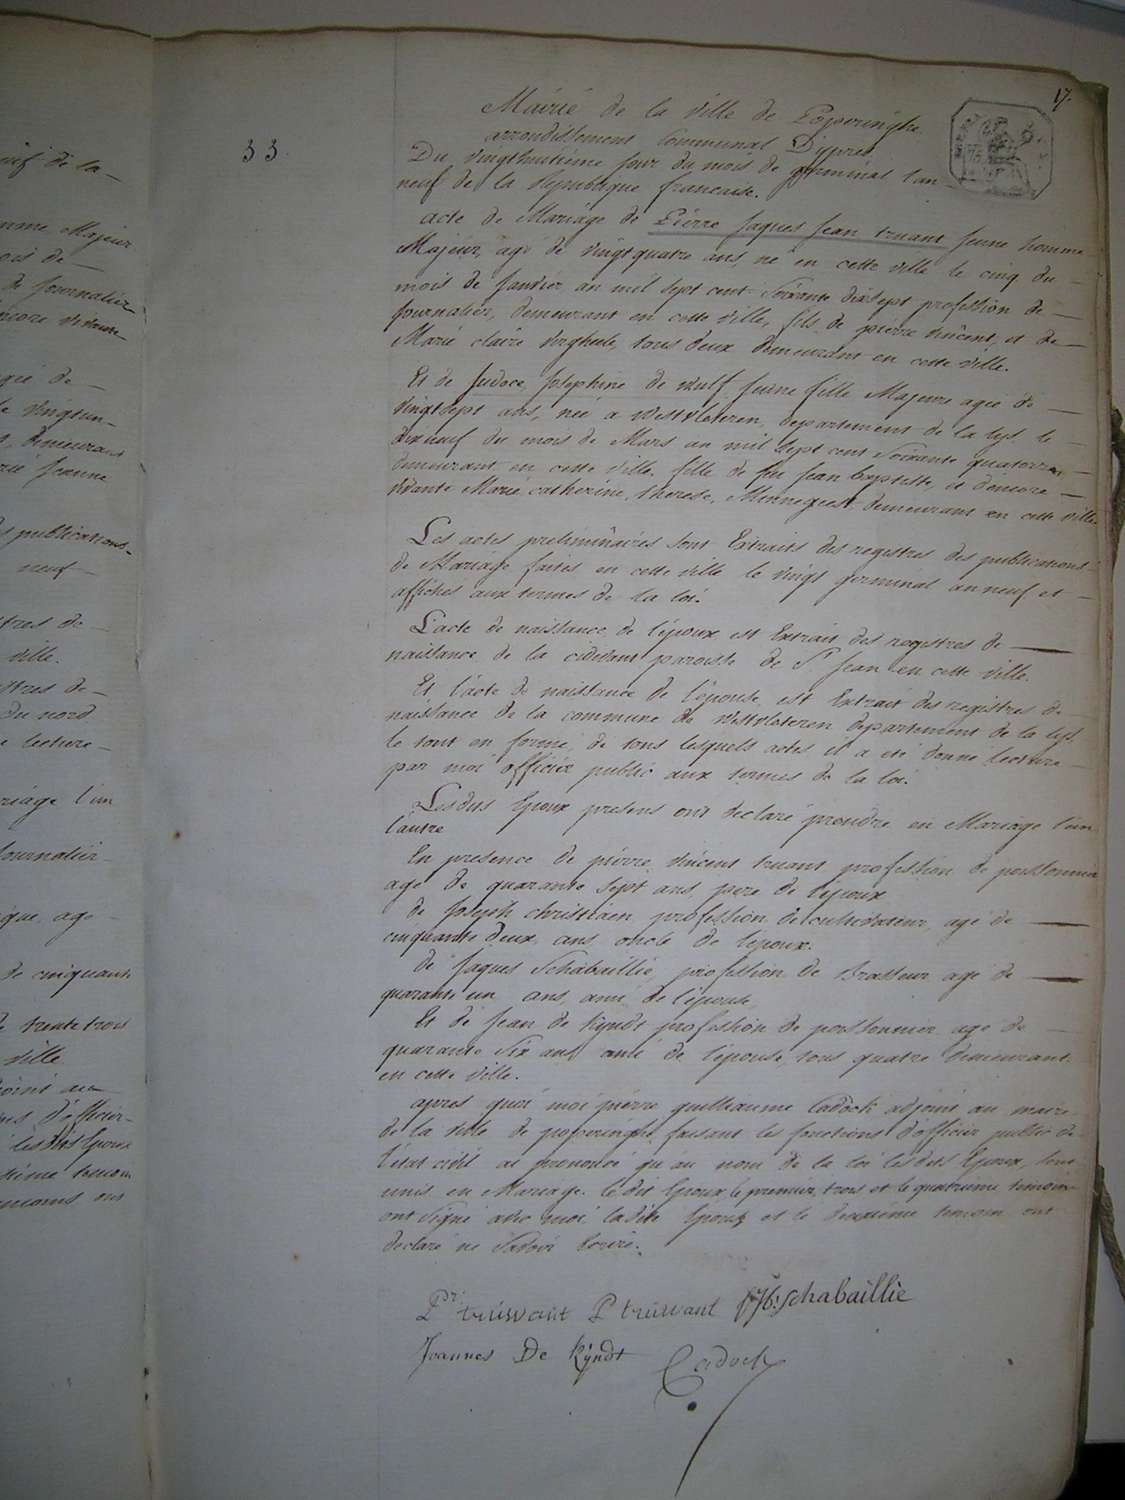 17.
33.
Mairie de la ville de Poperinghe
arrondissement Communal D'ypres
Du vingthuitieme jour du mois de germinal l'an
neuf de la Republique francaise.
acte de Mariage de Pierre Jaques Jean truant jeune homme
Majeur, agé de vingtquatre ans, né en cette ville le cinq du
mois de Janvier an mil sept cent Soixante dixsept profession de
Journalier, demeurant en cette ville, fils de pierre vincent, et de
Marie claire verghele, tous deux demeurant en cette ville.
Et de Judoce, Josephine de wulf jeune fille Majeure agée de
vingtsept ans, née a westvleteren, departement de la lys, le
dixneuf du mois de Mars an mil sept cent Soixante quatorze
demeurant en cette ville, fille de feu Jean baptiste, et d'encore
vivante Marie, catherine, therese, demeurant en cette ville
Les actes preliminaires sont Extraits des registres des publications
de Mariage faites en cette ville le vingt germinal an neuf et
affichés aux termes de la loi.
L'acte de naissance de l'époux est Extrait des registres de
naissance de la cidevant paroisse de St Jean en cette ville.
Et l'acte de naissance de l'épouse, est Extrait des registres de
naissance de la commune de westvleteren departement de la lys
le tout en forme, de tous lesquels actes il a eté donné lecture
par moi officier public aux termes de la loi.
Lesdits Epoux presens ont declaré prendre en Mariage l'un
l'autre
En presence de pierre vincent truant profession de poissonnier
age de quarante sept ans, pere de l'epoux
de Joseph christiaen, profession de cultivateur, agé de
cinquante deux, ans, oncle de l'époux.
de Jaques Schabaillie, profession de Brasseur agé de
quarante un ans, ami de l'épouse,
Et de Jean de Kyndt profession de poissonnier agé de
quarante Six ans, ami de l'épouse, tous quatre demeurant
en cette ville.
apres quoi moi pierre guilleaume Cadock adjoint au maire
de la ville de poperinghe, faisant les fonctions d'officier public de
l'etat civil ai prononcé qu'au nom de la loi lesdits Epoux, sont
unis en Mariage. le dit Epoux, le premier, trois et le quatrieme temoin
ont signé avec moi ladite Epouse et le deuxieme temoin ont
declaré ne Savoir ecrire.
Pr truwant P truwant Schabaillie
Joannes De Kÿndt Cadock